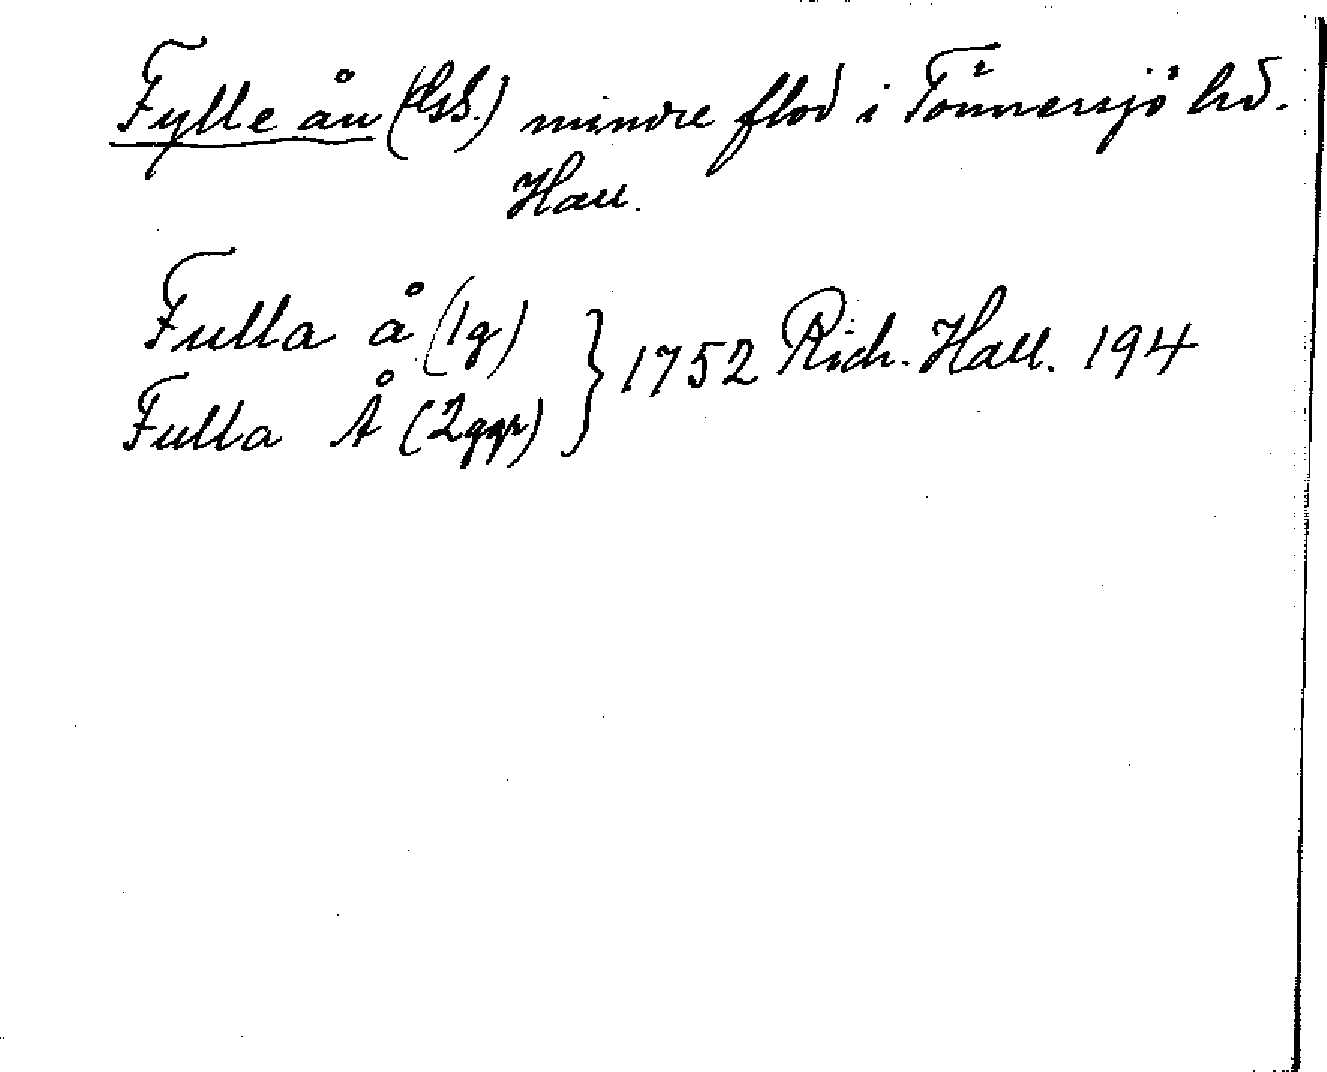 Fylle ån (Gsb.) mindre flod i Tönnersjö hd.
Hall.
Fulla å (1g)
Fulla Å (2ggr) } 1752 Rich. Hall. 194